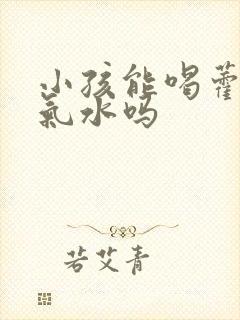 小孩能喝藿
氣水吗
若艾青